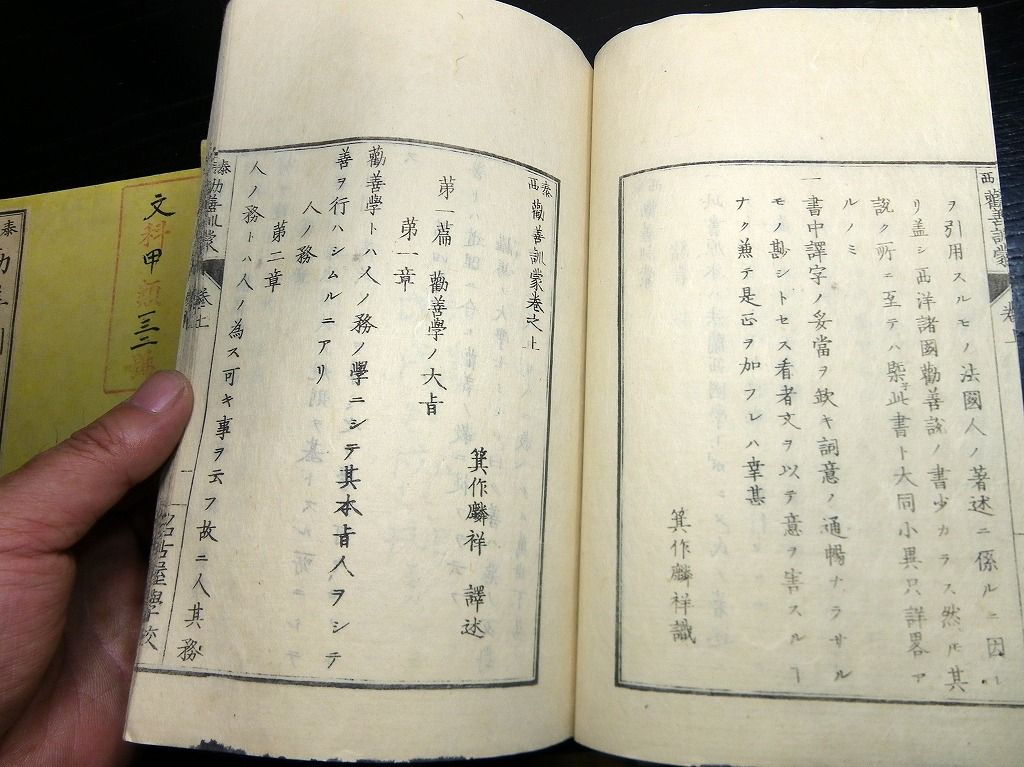 西勸善訓蒙
ヲ引用スルモノ法國人ノ著述ニ係ルニ因ル
リ盖シ西洋諸國勸善説ノ書少カラス然𪜈其
説ク所ニ至テハ槩子此書ト大同小異只詳畧ア
ルノミ
一書中譯字ノ妥當ヲ欽キ詞意ノ通暢ナラサル
モノ尠シトセス看者文ヲ以テ意ヲ害スルヿ
ナク兼テ是正ヲ加フレハ幸甚
箕作麟祥識
泰西勸善訓蒙卷之上
箕作麟祥 譯述
第一篇 勸善學ノ大旨
第一章
勸善學トハ人ノ務ノ學ニシテ其本旨人ヲシテ
善ヲ行ハシムルニアリ
人ノ務
第二章
人ノ務トハ人ノ為ス可キ事ヲ云フ故ニ人其務
泰西勸善訓蒙
名古屋學校
文科甲類一三二